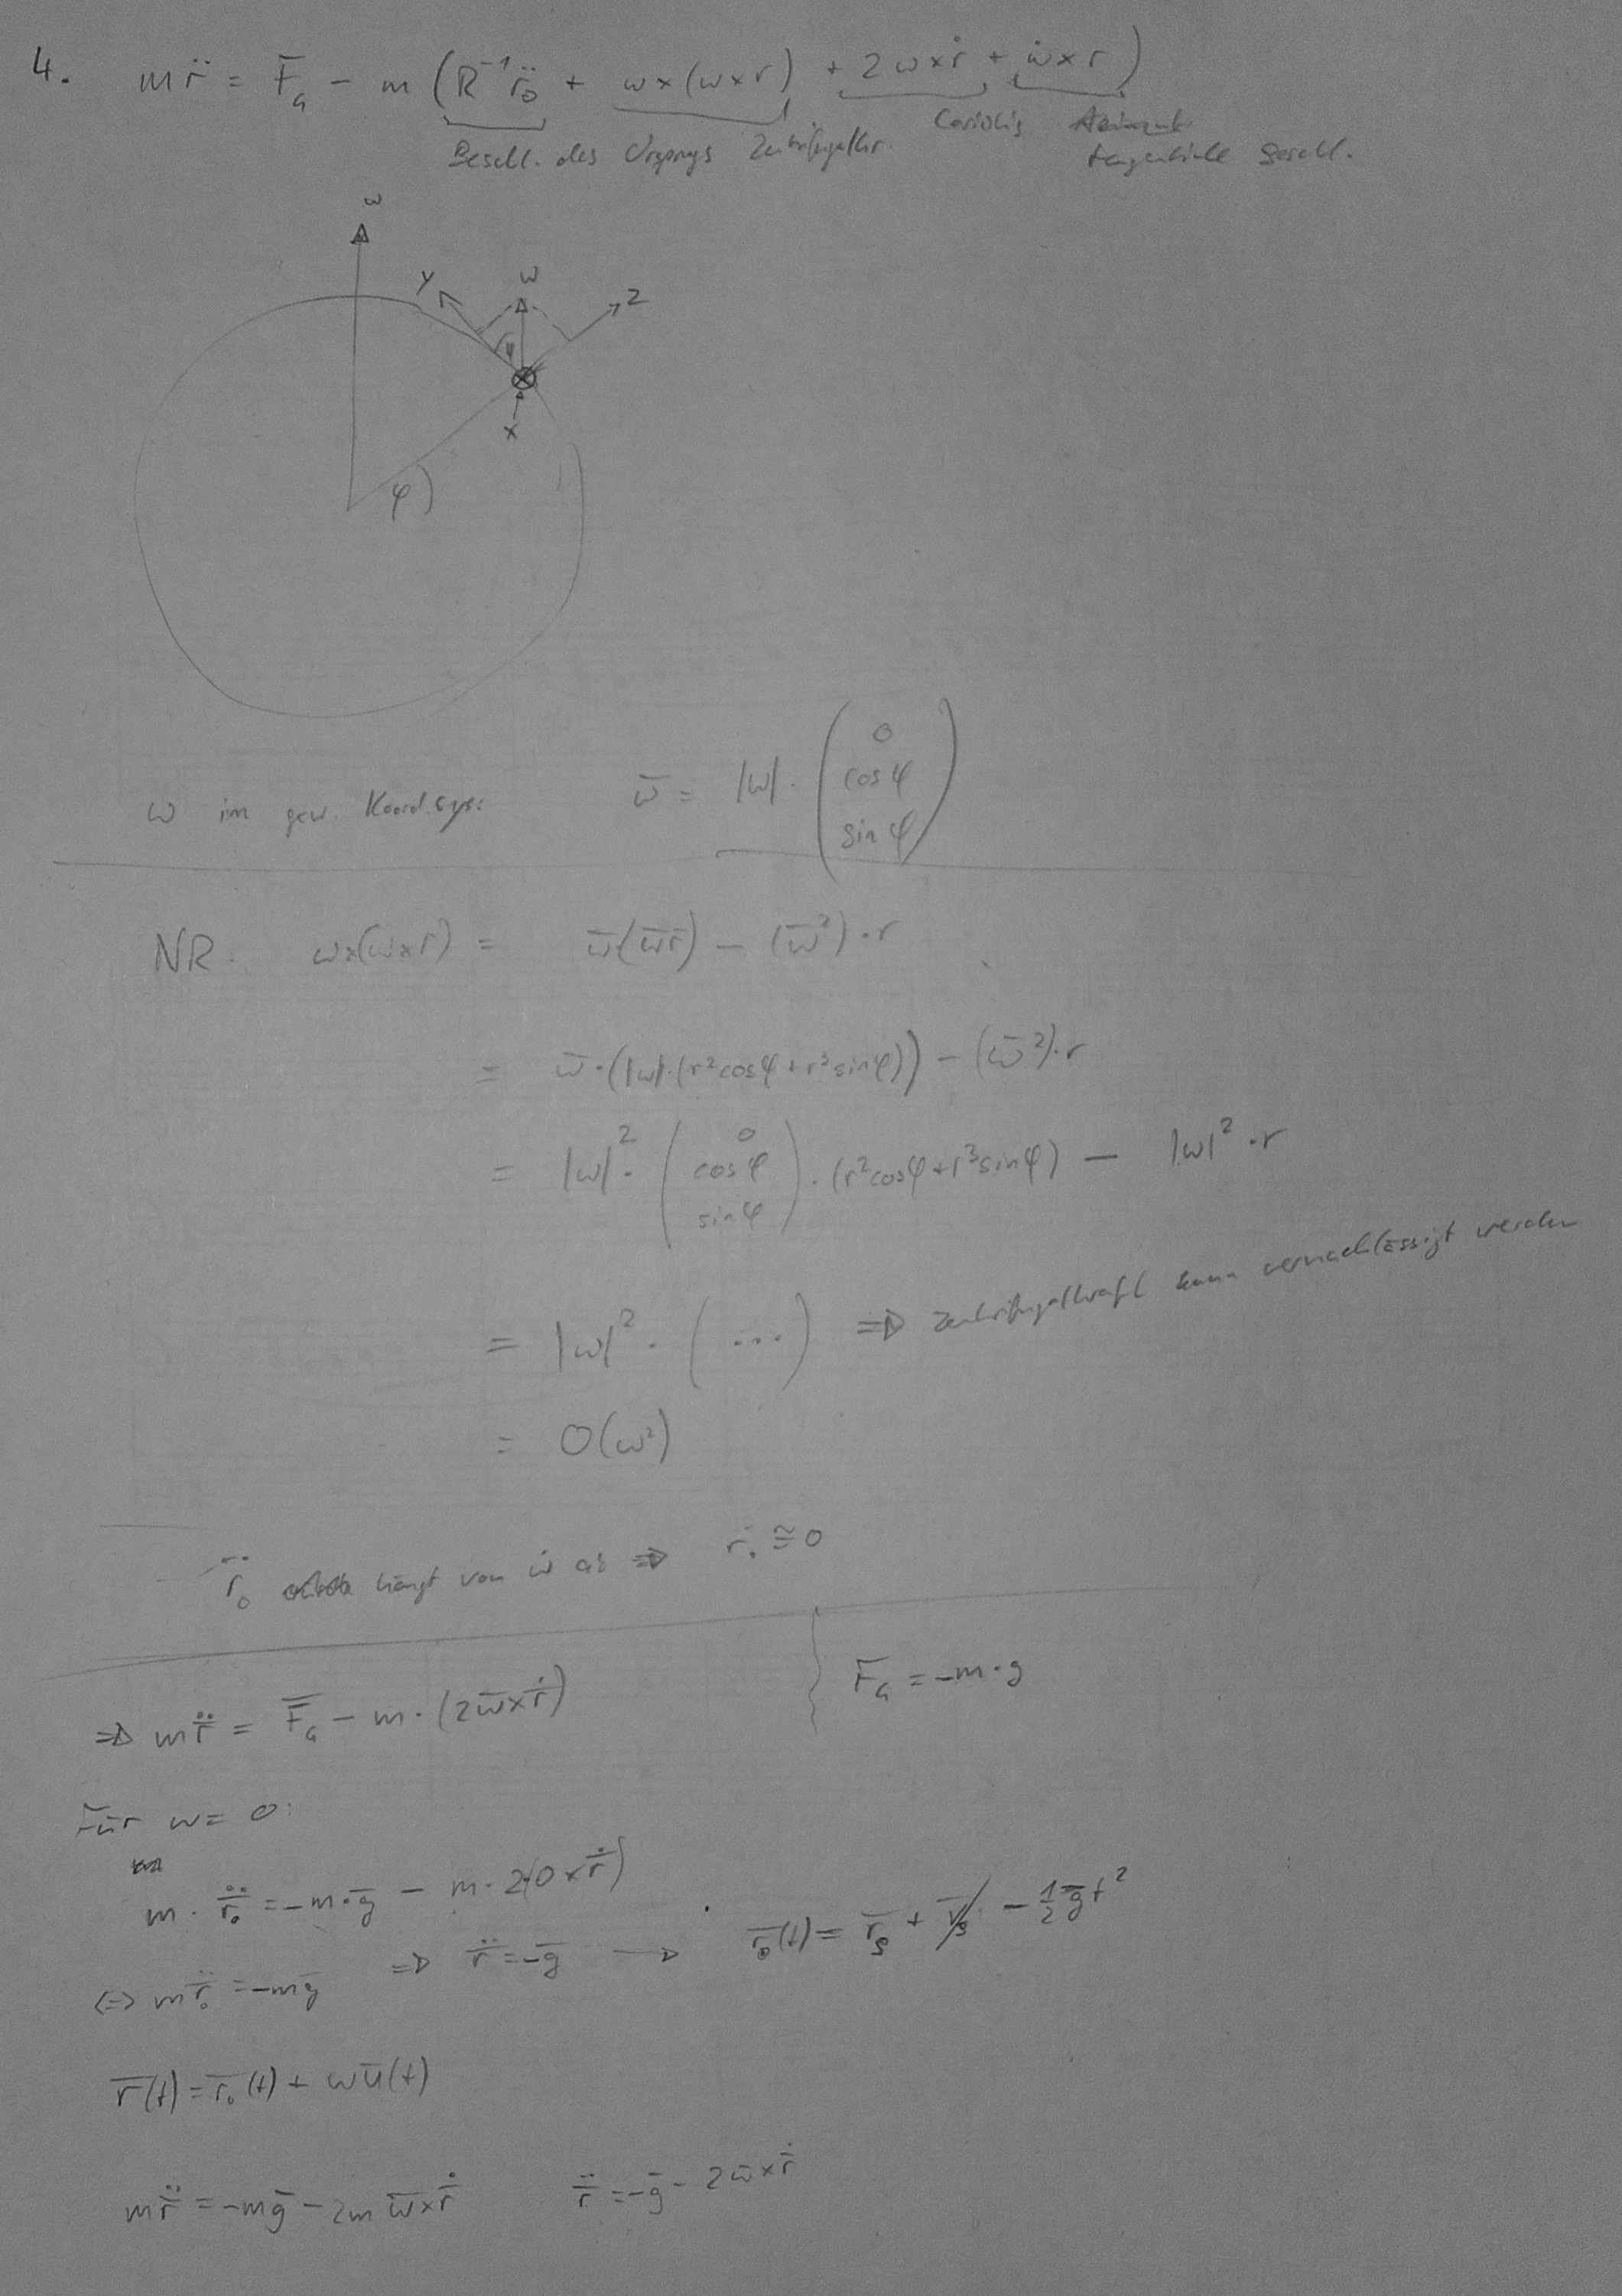 4. m r̈ = F̄ₐ − m (R⁻¹ r̈₀ + ω×(ω×r) + 2ω×ṙ + ω̇×r)
Coriolis
Beschl. des Ursprungs Zentrifugalkr. tangentiale Beschl.
ω
y ω z
φ
x
φ
ω im gew. Koord.sys: ω̄ = |ω| · (0 cos φ sin φ)
NR: ω×(ω×r) = ω̄(ω̄r̄) − (ω̄²)·r
= ω̄·(|ω|·(r²cosφ + r³sinφ)) − (ω̄²)·r
= |ω|² · (0 cosφ sinφ) · (r²cosφ + r³sinφ) − |ω|²·r
= |ω|² · (...) ⇒ Zentrifugalkraft kann vernachlässigt werden
= O(ω²)
r̈₀ hängt von ω̇ ab ⇒ r̈₀ ≅ 0
⇒ m r̈ = F̄ₐ − m·(2ω̄×ṙ) F̄ₐ = −m·g
Für ω = 0:
m · r̈₀ = −m·ḡ − m·2(0×ṙ)
⇔ m r̈₀ = −mḡ ⇒ r̈ = −ḡ → r̄₀(t) = r̄ₛ + v̄ₛ − ½ḡt²
r̄(t) = r̄₀(t) + ωū(t)
m r̈ = −mḡ − 2m ω̄×ṙ r̈ = −ḡ − 2ω̄×ṙ